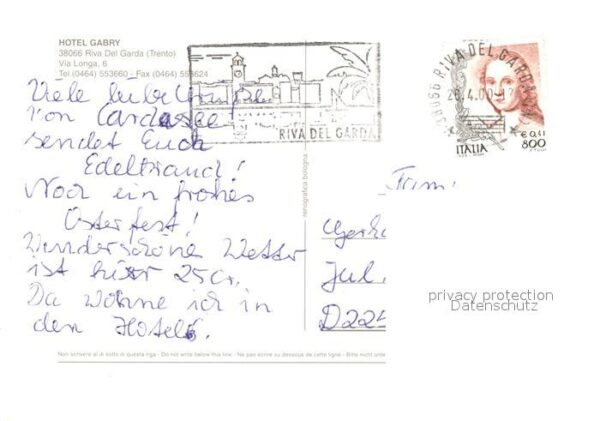 HOTEL GABRY
38066 Riva Del Garda (Trento)
Via Longa, 6
Tel.(0464) 553660 - Fax (0464) 553624
RIVA DEL GARDA
38066 RIVA DEL GARDA
26.4.00
€ 0,41
800
ITALIA
Viele liebe Grüße
von Gardasee
sendet Euch
Edeltraud!
Noch ein frohes
Osterfest!
Wunderschöne Wetter
ist hier 25Cr.
Da wohne ich in
den Hotel.
Fam.
Gerh
Jul.
D225
rotografica bologna
privacy protection
Datenschutz
Non scrivere al di sotto di questa riga - Do not write below this line - Ne pas écrire au dessous de cette ligne - Bitte nicht unte